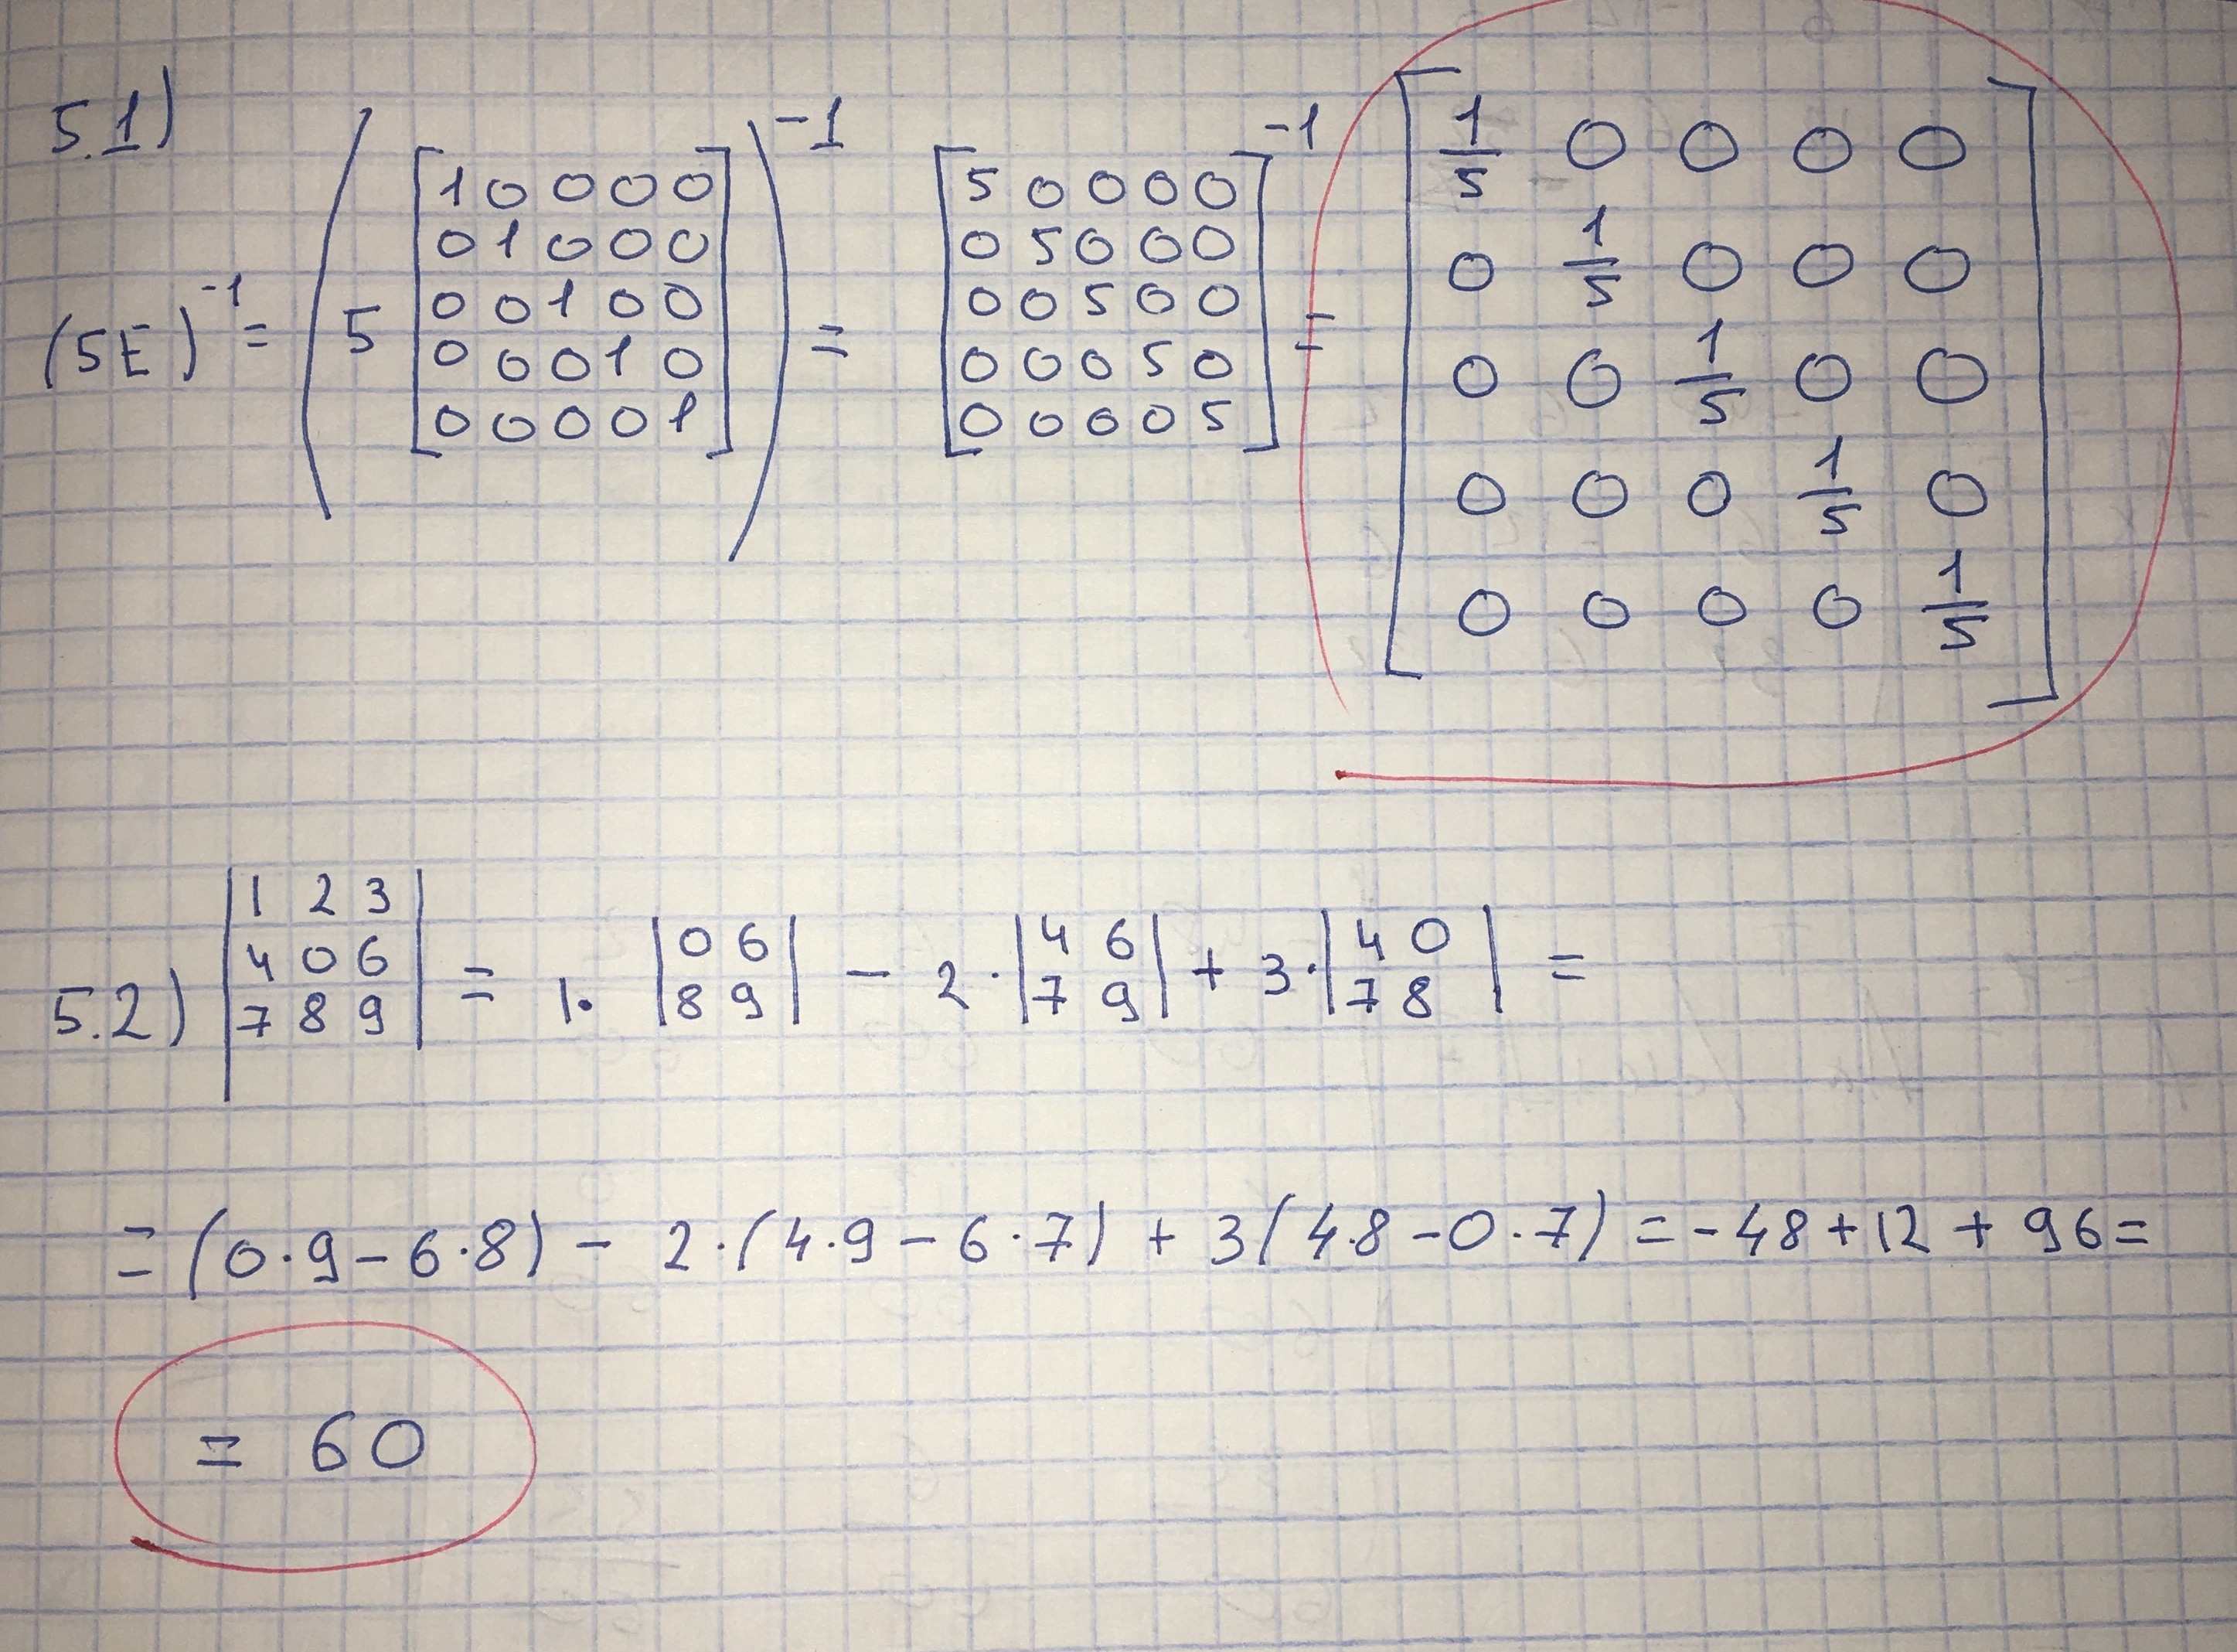 5.1)
(5E)⁻¹ = ( 5 [1 0 0 0 0; 0 1 0 0 0; 0 0 1 0 0; 0 0 0 1 0; 0 0 0 0 1] )⁻¹ = [5 0 0 0 0; 0 5 0 0 0; 0 0 5 0 0; 0 0 0 5 0; 0 0 0 0 5]⁻¹ = [1/5 0 0 0 0; 0 1/5 0 0 0; 0 0 1/5 0 0; 0 0 0 1/5 0; 0 0 0 0 1/5]
5.2) |1 2 3; 4 0 6; 7 8 9| = 1· |0 6; 8 9| − 2·|4 6; 7 9| + 3·|4 0; 7 8| =
= (0·9 − 6·8) − 2·(4·9 − 6·7) + 3(4·8 − 0·7) = −48 + 12 + 96 =
= 60